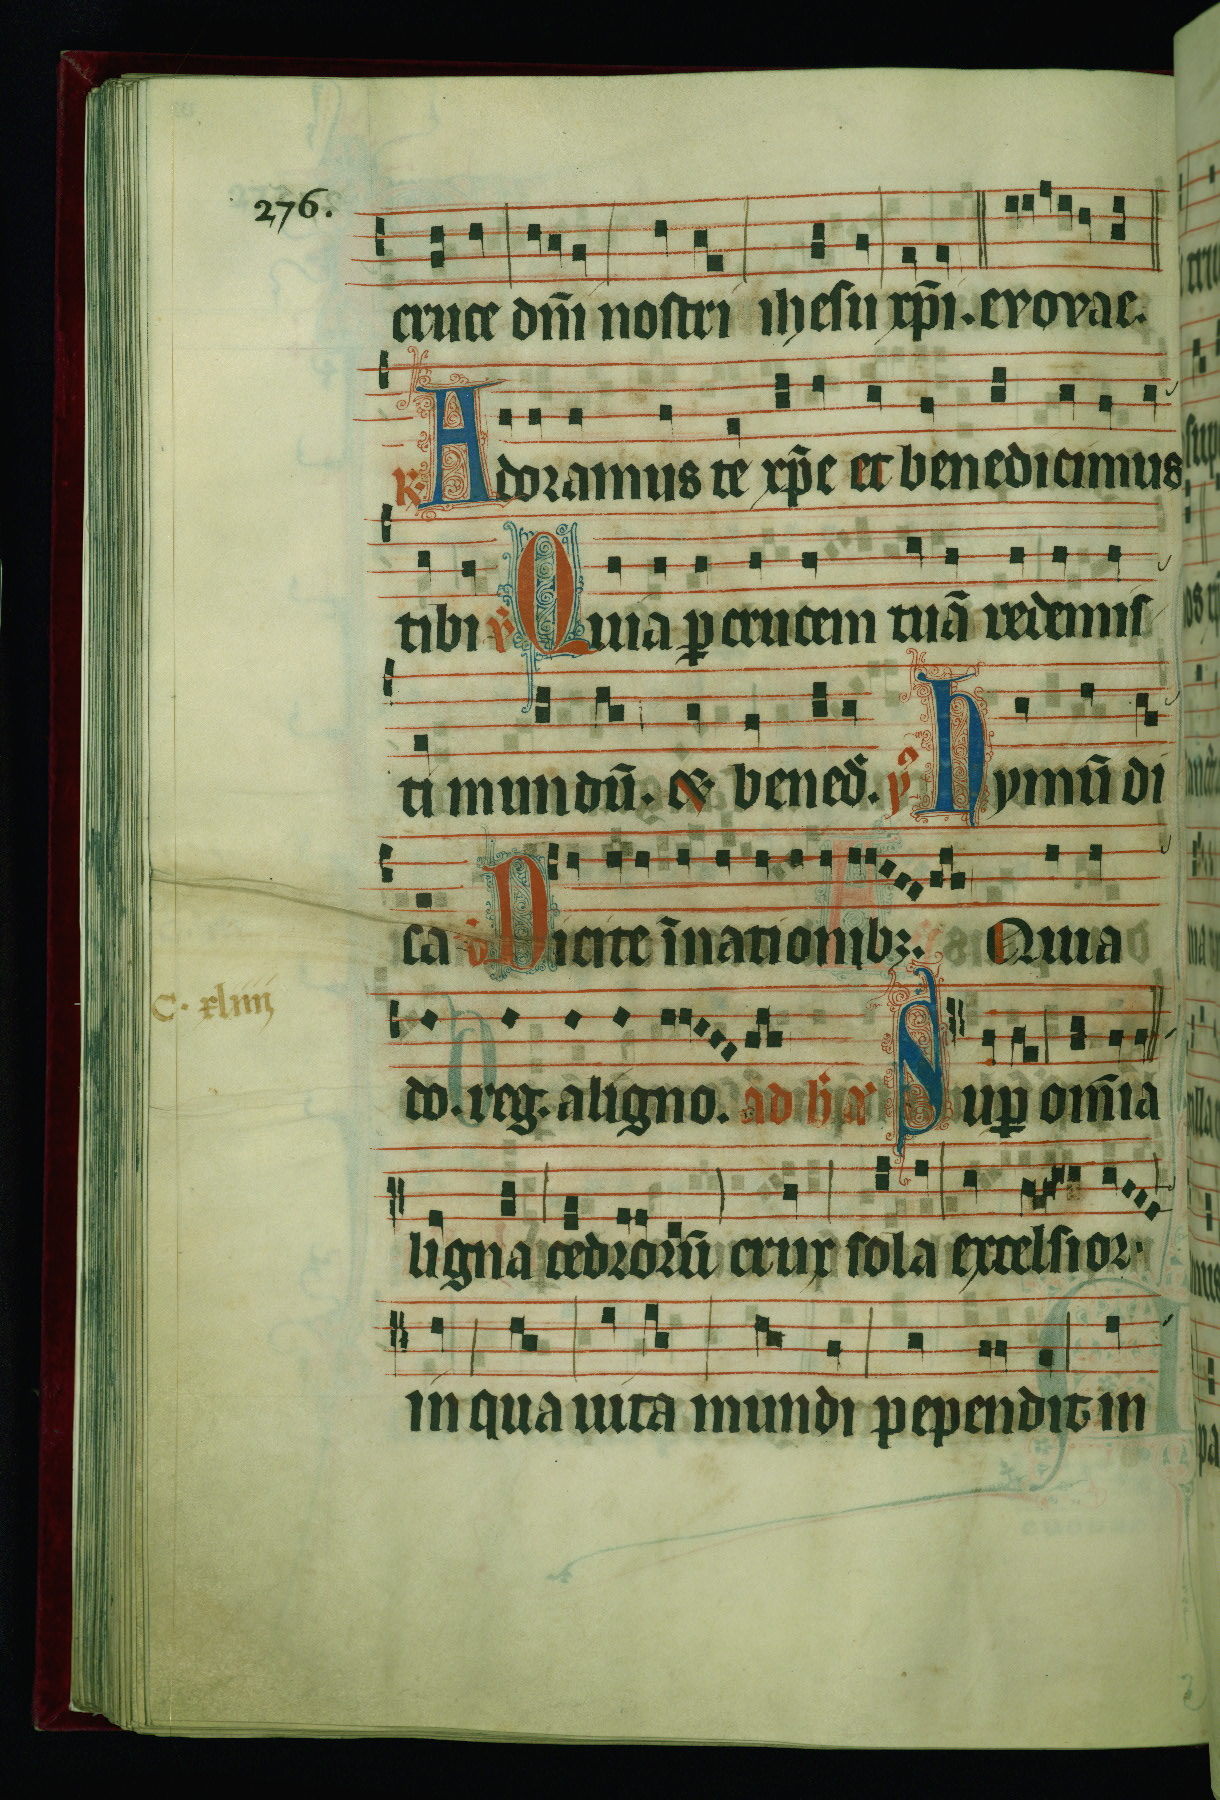 276.
cruce dm̄i nostri ihesu xp̄i. evovae.
R. Adoramus te xp̄e et benedicimus
tibi ꝟ Quia ꝑ crucem tuā redemis
ti mundū. & bened̄. yꝰ hymū di
ca ꝟ Dicite īnationibꝫ. Quia
C. xliiii
do. reg. aligno. ad b̄ ā Suꝑ om̄ia
ligna cedrorū crux sola excelsior
in qua uita mundi pependit in